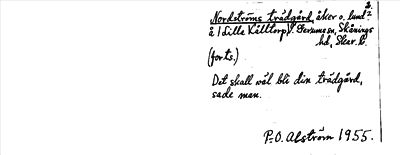 2.
Nordströms trädgård, åker o. lund
å 1 Lilla Källtorp, V. Gerums sn, Skånings
hd, Skar. l.
(forts.)
Det skall wäl bli din trädgård,
sade man.
P.O. Alström 1955.